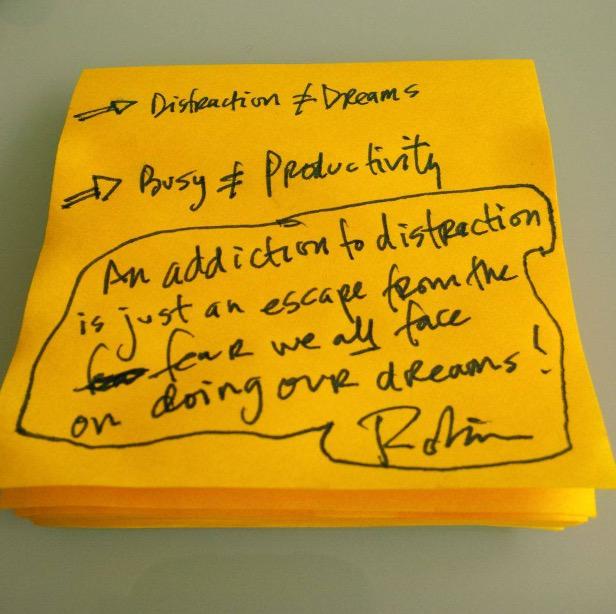 ⇒ Distraction ≠ Dreams
⇒ Busy ≠ Productivity
An addiction to distraction
is just an escape from the
fear we all face
on doing our dreams!
Robin